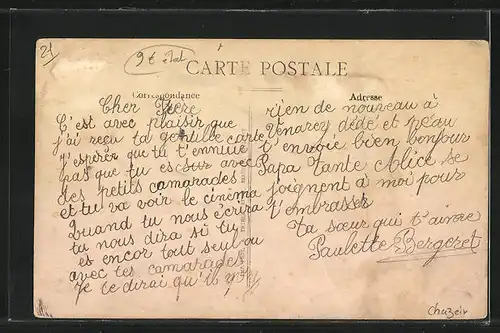 21
CARTE POSTALE
Correspondance
Adresse
Cher Frère
C'est avec plaisir que
j'ai reçu ta gentille carte
J'espérer que tu t'ennuie
pas que tu es sur avec
des petits camarades
et tu va voir le cinéma
Quand tu nous écrira
tu nous dira si tu
es encor tout seul ou
avec tes camarades
Je te dirai qu'il y a
rien de nouveau à
Venarey dédé et
t'envoie bien bonjour
Papa Tante Alice se
joignent à moi pour
t'embrasser
Ta sœur qui t'aime
Paulette Bergeret